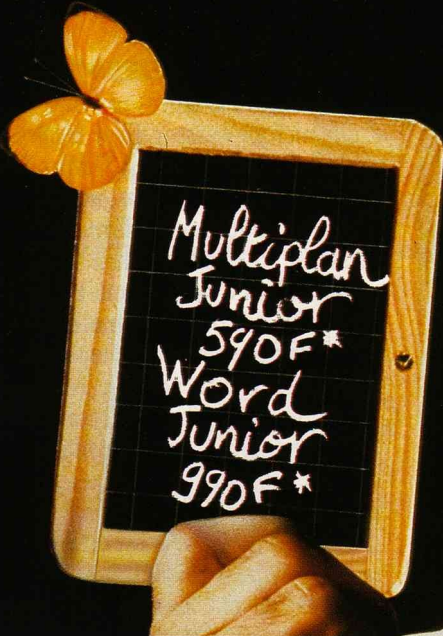 Multiplan
Junior
590F*
Word
Junior
990F*